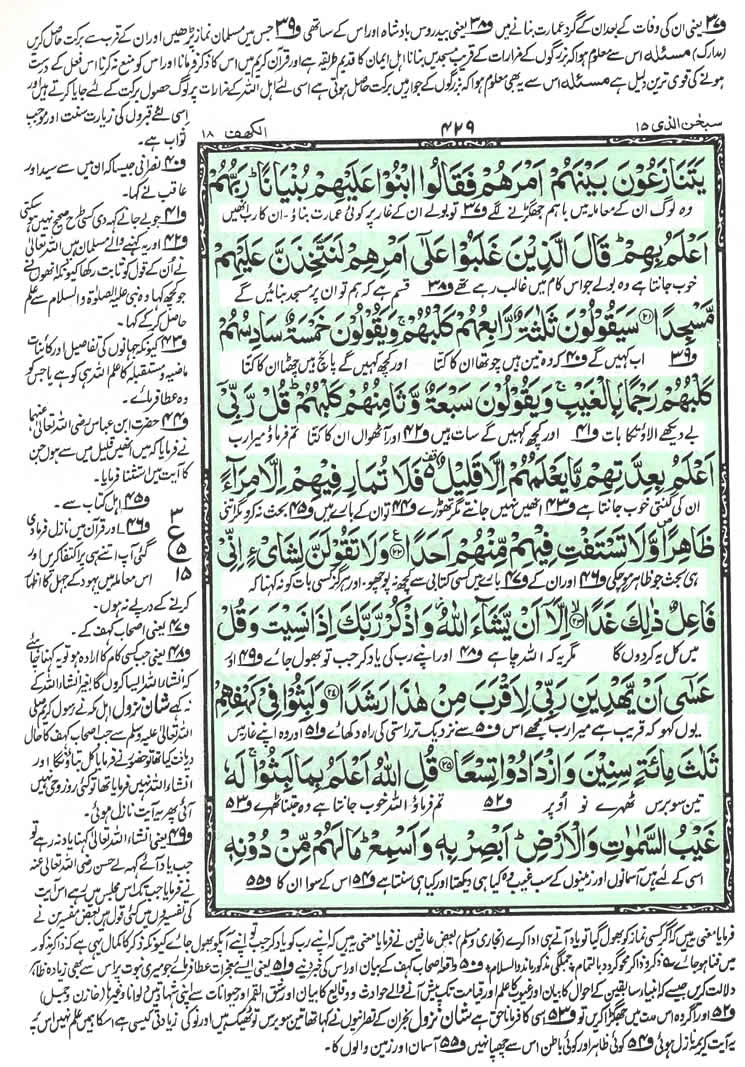 ف۳۷ یعنی ان کی وفات کے بعد ان کے گرد عمارت بنانے میں ف۳۸ یعنی بیدروس بادشاہ اور اس کے ساتھی ف۳۹ جس میں مسلمان نماز پڑھیں اور ان کے قرب سے برکت حاصل کریں
(مدارک) مسئلہ اس سے معلوم ہوا کہ بزرگوں کے مزارات کے قریب مسجدیں بنانا اہل ایمان کا قدیم طریقہ ہے اور قرآن کریم میں اس کا ذکر فرمانا اور اس کو منع نہ کرنا اس فعل کے درست
ہونے کی قوی ترین دلیل ہے مسئلہ اس سے یہ بھی معلوم ہوا کہ بزرگوں کے جوار میں برکت حاصل ہوتی ہے اسی لئے اہل اللہ کے مزارات پر لوگ حصول برکت کے لئے جایا کرتے ہیں اور
سبحٰن الذی ۱۵
۴۲۹
الکھف ۱۸
یَتَنَازَعُوْنَ بَیْنَهُمْ اَمْرَهُمْ فَقَالُوا ابْنُوْا عَلَیْهِمْ بُنْیَانًا ؕ رَبُّهُمْ
وہ لوگ ان کے معاملہ میں باہم جھگڑنے لگے ف۳۷ تو بولے ان کے غار پر کوئی عمارت بناؤ۔ ان کا رب انھیں
اَعْلَمُ بِهِمْ ؕ قَالَ الَّذِیْنَ غَلَبُوْا عَلٰۤی اَمْرِهِمْ لَنَتَّخِذَنَّ عَلَیْهِمْ
خوب جانتا ہے وہ بولے جو اس کام میں غالب رہے تھے ف۳۸ قسم ہے کہ ہم تو ان پر مسجد بنائیں گے
مَّسْجِدًا ﴿۲۱﴾ سَیَقُوْلُوْنَ ثَلٰثَةٌ رَّابِعُهُمْ كَلْبُهُمْ ۚ وَ یَقُوْلُوْنَ خَمْسَةٌ سَادِسُهُمْ
ف۳۹ اب کہیں گے ف۴۰ کہ وہ تین ہیں چوتھا ان کا کتا اور کچھ کہیں گے پانچ ہیں چھٹا ان کا کتا
كَلْبُهُمْ رَجْمًۢا بِالْغَیْبِ ۚ وَ یَقُوْلُوْنَ سَبْعَةٌ وَّ ثَامِنُهُمْ كَلْبُهُمْ ؕ قُلْ رَّبِّیْۤ
بے دیکھے الاؤتکا بات ف۴۱ اور کچھ کہیں گے سات ہیں ف۴۲ اور آٹھواں ان کا کتا تم فرماؤ میرا رب
اَعْلَمُ بِعِدَّتِهِمْ مَّا یَعْلَمُهُمْ اِلَّا قَلِیْلٌ ۫ فَلَا تُمَارِ فِیْهِمْ اِلَّا مِرَآءً
ان کی گنتی خوب جانتا ہے ف۴۳ انھیں نہیں جانتے مگر تھوڑے ف۴۴ تو ان کے بارے میں ف۴۵ بحث نہ کرو مگر اتنی
ظَاهِرًا ۪ وَّ لَا تَسْتَفْتِ فِیْهِمْ مِّنْهُمْ اَحَدًا ﴿۲۲﴾ وَ لَا تَقُوْلَنَّ لِشَایْءٍ اِنِّیْ
ہی بحث جو ظاہر ہو چکی ف۴۶ اور ان کے ف۴۷ بارے میں کسی کتابی سے کچھ نہ پوچھو۔ اور ہرگز کسی بات کو نہ کہنا کہ
فَاعِلٌ ذٰلِكَ غَدًا ﴿۲۳﴾ اِلَّاۤ اَنْ یَّشَآءَ اللّٰهُ ؗ وَ اذْكُرْ رَّبَّكَ اِذَا نَسِیْتَ وَ قُلْ
میں کل یہ کر دوں گا مگر یہ کہ اللہ چاہے ف۴۸ اور اپنے رب کی یاد کر جب تو بھول جائے ف۴۹ اور
عَسٰۤی اَنْ یَّهْدِیَنِ رَبِّیْ لِاَقْرَبَ مِنْ هٰذَا رَشَدًا ﴿۲۴﴾ وَ لَبِثُوْا فِیْ كَهْفِهِمْ
یوں کہو کہ قریب ہے میرا رب مجھے اس ف۵۰ سے نزدیک تر راستی کی راہ دکھائے ف۵۱ اور وہ اپنے غار میں
ثَلٰثَ مِائَةٍ سِنِیْنَ وَ ازْدَادُوْا تِسْعًا ﴿۲۵﴾ قُلِ اللّٰهُ اَعْلَمُ بِمَا لَبِثُوْا ۚ لَهٗ
تین سو برس ٹھہرے نو اوپر ف۵۲ تم فرماؤ اللہ خوب جانتا ہے وہ جتنا ٹھہرے ف۵۳
غَیْبُ السَّمٰوٰتِ وَ الْاَرْضِ ؕ اَبْصِرْ بِهٖ وَ اَسْمِعْ ؕ مَا لَهُمْ مِّنْ دُوْنِهٖ
اسی کے لئے ہیں آسمانوں اور زمینوں کے سب غیب وہ کیا ہی دیکھتا اور کیا ہی سنتا ہے ف۵۴ اس کے سوا ان کا ف۵۵
اسی لئے قبروں کی زیارت سنت اور موجب
ثواب ہے۔
ف۴۰ نصرانی جیسا کہ ان میں سے سید اور
عاقب نے کہا۔
ف۴۱ جو بے جانے کہہ دی کسی طرح صحیح نہیں ہو سکتی
ف۴۲ اور یہ کہنے والے مسلمان ہیں اللہ تعالیٰ
نے ان کے قول کو ثابت رکھا کیونکہ انھوں نے
جو کچھ کہا وہ نبی علیہ الصلوٰۃ والسلام سے علم
حاصل کر کے کہا۔
ف۴۳ کیونکہ جہانوں کی تفاصیل اور کائنات
ماضیہ و مستقبلہ کا علم اللہ ہی کو ہے یا جس کو
وہ عطا فرمائے۔
ف۴۴ حضرت ابن عباس رضی اللہ تعالیٰ عنہما
نے فرمایا کہ میں انھیں قلیل میں سے ہوں جن
کا آیت میں استثنا فرمایا۔
ف۴۵ اہل کتاب سے۔
ف۴۶ اور قرآن میں نازل فرما دی
گئی آپ اتنے ہی پر اکتفا کریں اور
اس معاملہ میں یہود کے جہل کا اظہار
کرنے کے درپے نہ ہوں۔
۳
ع
۵
۱۵
ف۴۷ یعنی اصحاب کہف کے۔
ف۴۸ یعنی جب کسی کام کا ارادہ ہو تو یہ کہنا چاہئے
کہ انشاء اللہ ایسا کروں گا بغیر انشاء اللہ کے
نہ کہے شان نزول اہل مکہ نے رسول کریم صلی
اللہ تعالیٰ علیہ وسلم سے جب اصحاب کہف کا حال
دریافت کیا تھا تو حضور نے فرمایا کل بتاؤں گا اور
انشاء اللہ نہیں فرمایا تھا تو کئی روز وحی نہیں
آئی پھر یہ آیت نازل ہوئی۔
ف۴۹ یعنی انشاء اللہ تعالیٰ کہنا یاد نہ رہے تو
جب یاد آئے کہہ لے حسن رضی اللہ تعالیٰ عنہ
نے فرمایا جب تک اس مجلس میں رہے اس آیت
کی تفسیروں میں کئی قول ہیں بعض مفسرین نے
فرمایا معنی یہ ہیں کہ اگر کسی نماز کو بھول گیا تو یاد آتے ہی ادا کرے (بخاری و مسلم) بعض عارفین نے فرمایا معنی یہ ہیں کہ اپنے رب کو یاد کر جب تو اپنے آپ کو بھول جائے کیونکہ ذکر کا کمال یہی ہے کہ ذاکر مذکور
میں فنا ہو جائے ؎ ذکر و ذاکر محو گردد بالتمام ٭ جملگی مذکور ماند والسلام ف۵۰ واقعہ اصحاب کہف کے بیان اور اس کی خبر دینے ف۵۱ یعنی ایسے معجزات عطا فرمائے جو میری نبوت پر اس سے بھی زیادہ ظاہر
دلالت کریں جیسے کہ انبیاء سابقین کے احوال کا بیان اور غیوب کا علم اور قیامت تک پیش آنے والے حوادث و وقائع کا بیان اور شق القمر اور حیوانات سے اپنی شہادتیں دلوانا وغیرہا (خازن و جمل)
ف۵۲ اور اگر وہ اس مدت میں جھگڑا کریں تو ف۵۳ اسی کا فرمانا حق ہے شان نزول نجران کے نصرانیوں نے کہا تھا تین سو برس تو ٹھیک ہیں اور نو کی زیادتی کیسی ہے اس کا ہمیں علم نہیں اس پر
یہ آیت کریمہ نازل ہوئی ف۵۴ کوئی ظاہر اور کوئی باطن اس سے چھپا نہیں ف۵۵ آسمان اور زمین والوں کا۔